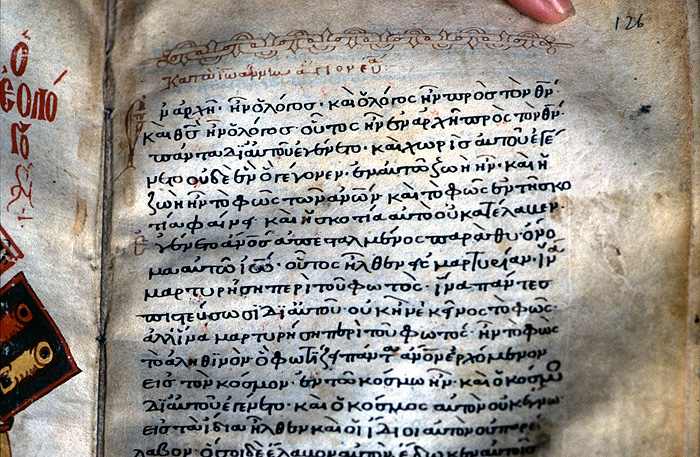 ὁ
Θεολό
γο
126
Κατὰ ἰωάννην ἅγιον εὐα
ἐν ἀρχῆ ἦν ὁ λόγος· καὶ ὁ λόγος ἦν πρὸς τὸν θν·
καὶ θς ἦν ὁ λόγος· οὗτος ἦν ἐν ἀρχῆ πρὸς τὸν θν·
πάντα δι αὐτοῦ ἐγένετο· καὶ χωρὶς αὐτοῦ ἐγέ
νετο οὐδὲ ἓν ὃ γέγονεν· ἐν αὐτῶ ζωὴ ἦν· καὶ ἡ
ζωὴ ἦν τὸ φῶς τῶν ἀνων· καὶ τὸ φῶς ἐν τῆ σκο
τία φαίνει· καὶ ἡ σκοτία αὐτὸ οὐ κατέλαβεν·
ἐγένετο ἀνος ἀπεσταλμένος παρὰ θυ· ὄνο
μα αὐτῶ ἰω· οὗτος ἦλθεν εἰς μαρτυρίαν· ἵνα
μαρτυρήση περὶ τοῦ φωτός· ἵνα πάντες
πιστεύσωσι δι αὐτοῦ· οὐκ ἦν ἐκεῖνος τὸ φῶς·
ἀλλ ἵνα μαρτυρήση περὶ τοῦ φωτός· ἦν τὸ φῶς
τὸ ἀληθινὸν ὃ φωτίζει πάντα ἀνον ἐρχόμενον
εἰς τὸν κόσμον· ἐν τῶ κόσμω ἦν· καὶ ὁ κόσμος
δι αὐτοῦ ἐγένετο· καὶ ὁ κόσμος αὐτὸν οὐκ ἔγνω
εἰς τὰ ἴδια ἦλθεν καὶ οἱ ἴδιοι αὐτὸν οὐ παρέ
λαβον· ὅσοι δὲ ἔλαβον αὐτὸν ἔδωκεν αὐτοῖς